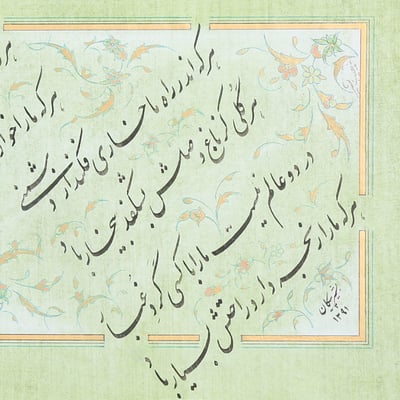 هر
هر که ما را خوار
هر که اندر راه ما خاری فکند از دشمنی
هر گلی کز باغ وصلش بشکفد بیخار باد
در دو عالم نیست ما را با کسی گرد و غبار
هر که ما را رنجه دارد راحتش بسیار باد
۱۳۹۱